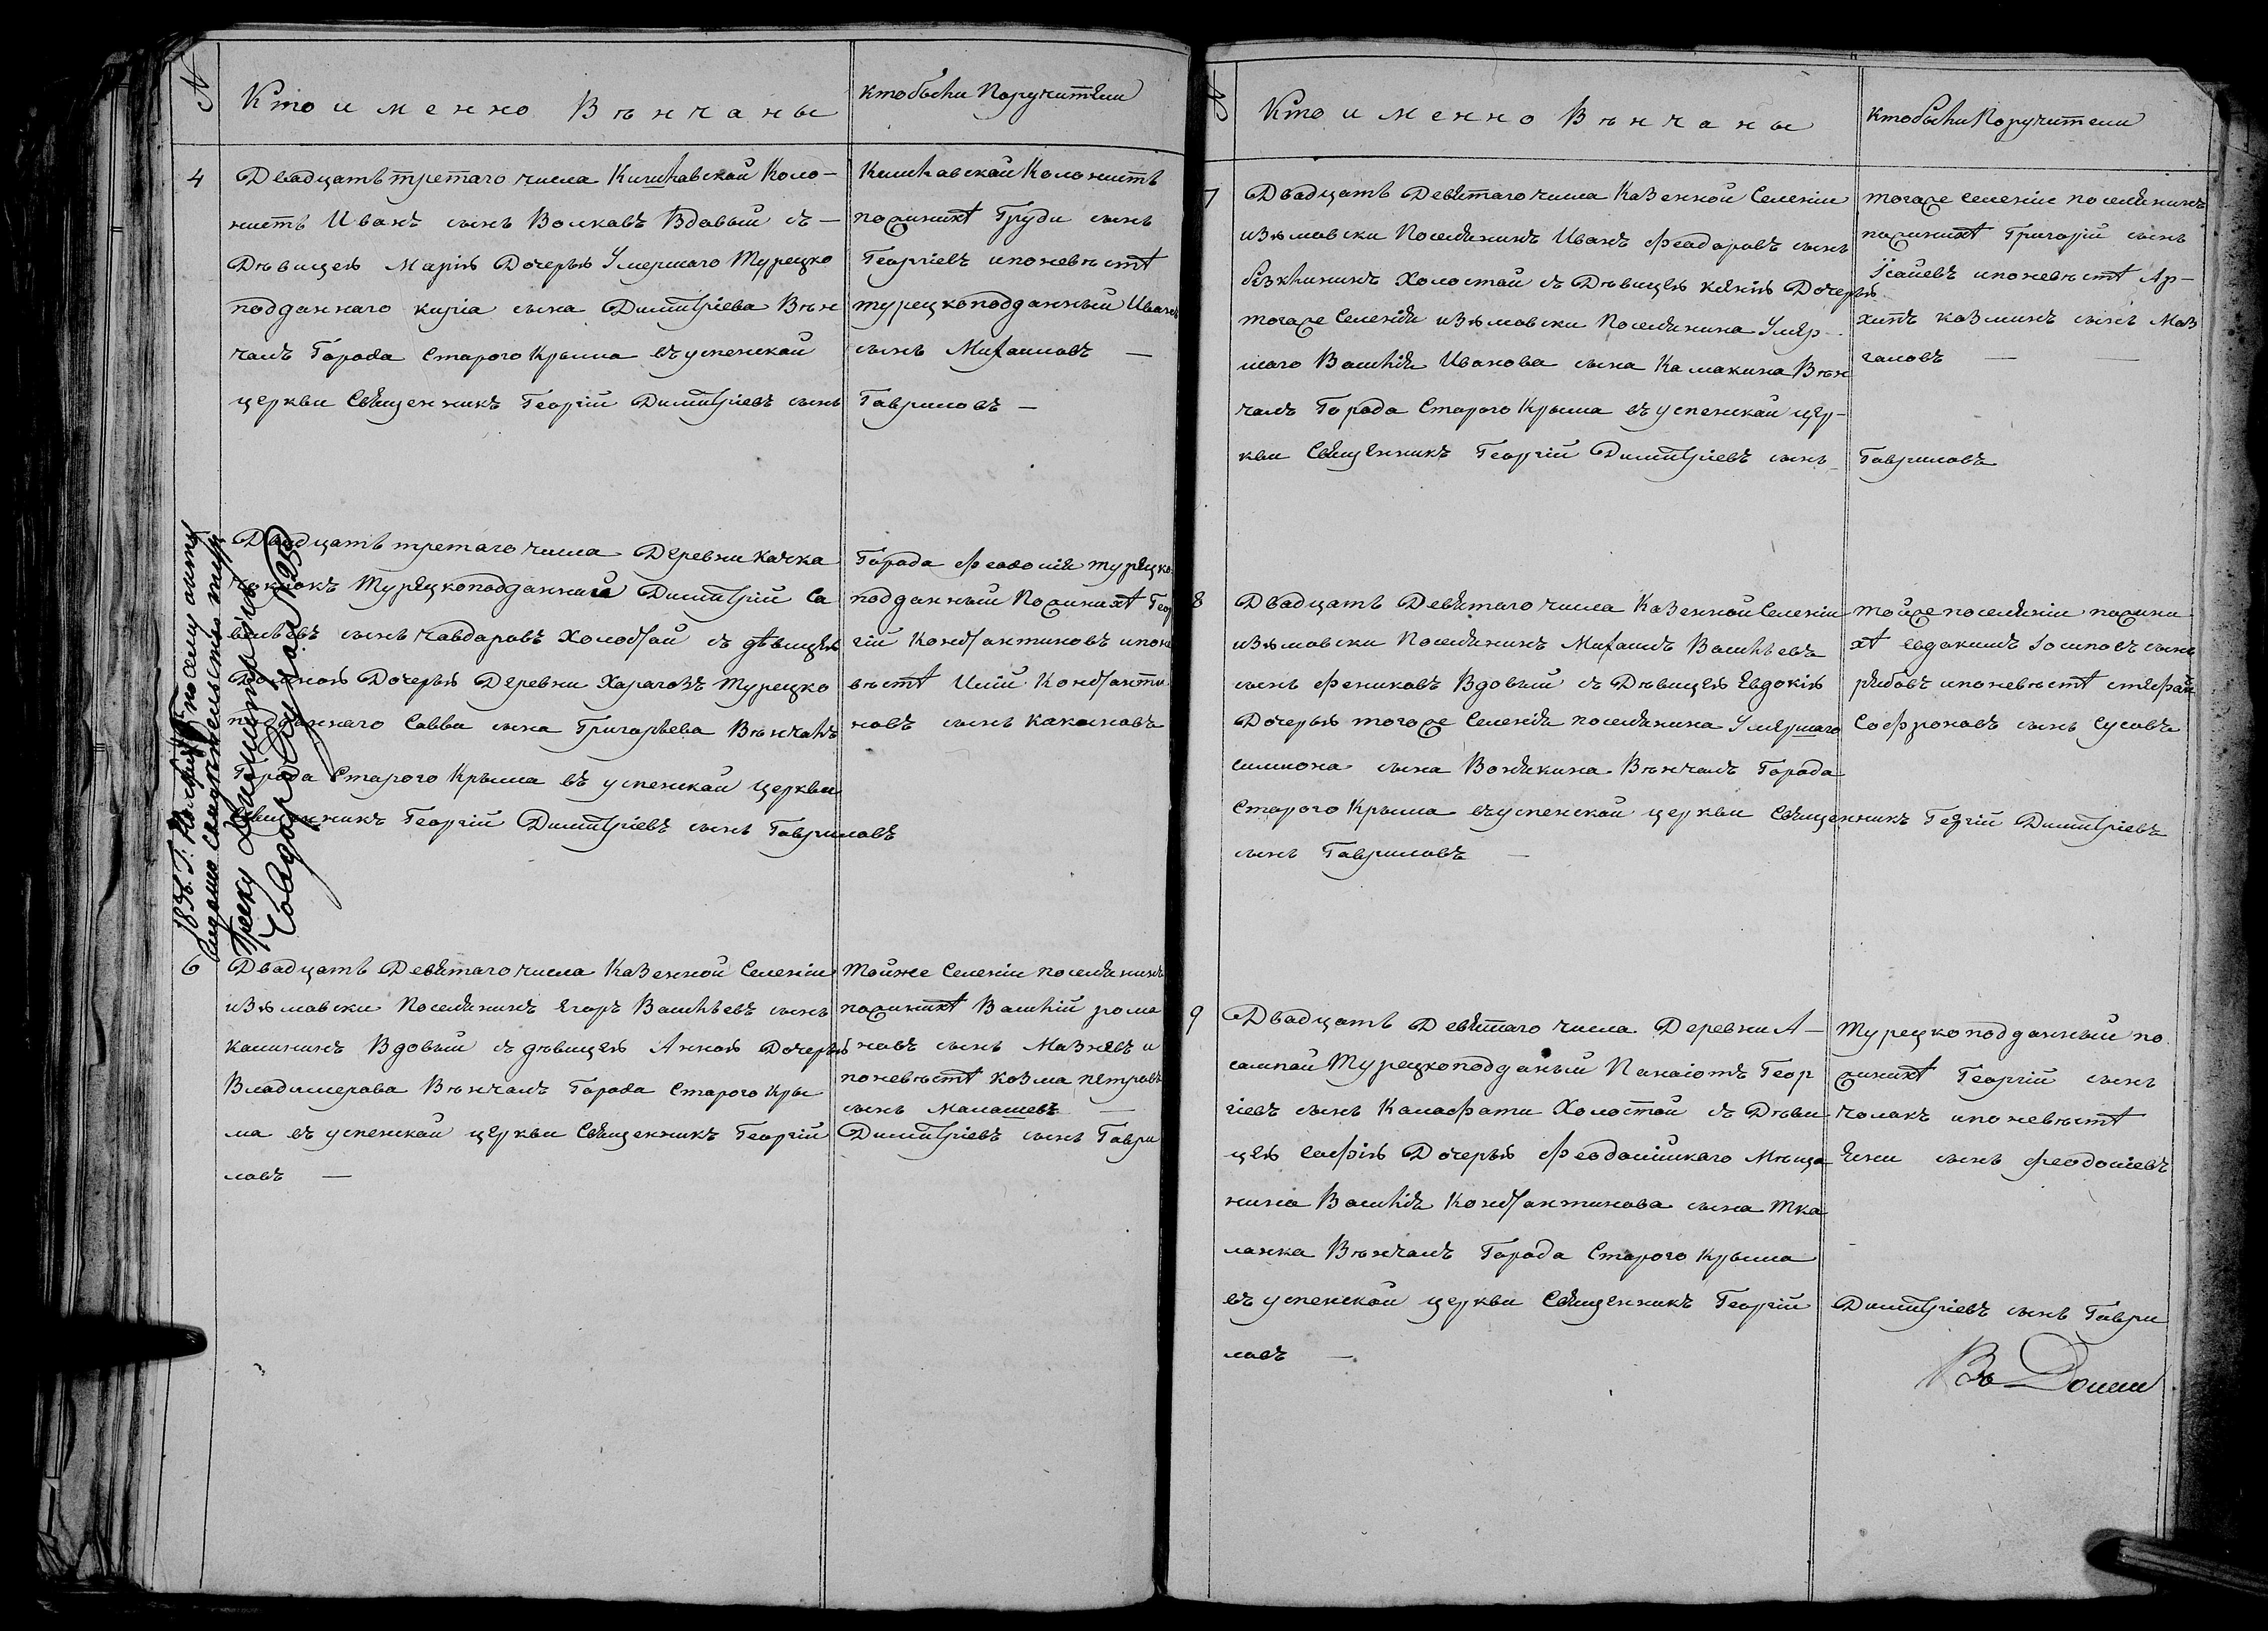 №
Кто именно Вѣнчаны
кто были Поручители
4
Двадцать третаго числа Кишлавской Коло-
нистъ Иванъ сынъ Волкавъ Вдавый съ —
Дѣвицея Марія Дочерья Умершаго Турецко
подданнаго кирїа сына Димитріева Вѣн
чалъ Города Старого Крыма въ успенской
церкви Священникъ Георгій Димитріевъ сынъ
Кишлавской Колонистъ
по жинихѣ Груди сынъ
Георгіевъ и поневѣстѣ
турецкоподданный Иванъ
сынъ Михаиловъ —
Гавриловъ —
Двадцать третаго числа Деревни качка
Турецкоподданнаго Димитрій Са
сынъ чавдаровъ Холостай съ дѣвицея
Дочерья Деревни Харагозъ Турецко
Савви сына Григорьева Вѣнчалъ
Города Старого Крыма въ успенской церкви
Священникъ Георгій Димитріевъ сынъ Гавриловъ
Города Феодосіи турецко
подданный По жинихѣ Геор
гій Константиновъ и поне
вѣстѣ Илій Константи
новъ сынъ какиновъ
по сему акту
выдано свидѣтельство тур.
Греку Димитрію
Човдарову за № 23
6
Двадцать Девятаго числа Казенной Селеніи
изюмовски Поселянинъ Егоръ Васильевъ сынъ
калининъ Вдовый съ дѣвицея Анноя Дочерья
Владимерава Вѣнчалъ Города Старого Кры
ма въ успенской церкви Священникъ Георгій
ловъ —
Тойже Селеніи поселянинъ
по жинихѣ Василій рома
новъ сынъ Мазневъ и
поневѣстѣ Козма петровъ
сынъ Малашевъ —
Димитріевъ сынъ Гаври
№
Кто именно Вѣнчаны
кто были Поручители
7
Двадцать Девятаго числа Казенной Селеніи
изюмовски Поселянинъ Иванъ феодаровъ сынъ
Холостай съ Дѣвицея ксенія Дочерья
тогоже Селенія изюмовски Поселянина Умер-
шаго Василія Иванова сына Камакина Вѣн
чалъ Города Старого Крыма въ успенской цер-
кви Священникъ Георгій Димитріевъ сынъ
тогоже селеніи поселянинъ
по жинихѣ Григорій сынъ
Ісаіевъ и поневѣстѣ Ар-
хипъ казминъ сынъ Маз
галовъ —
Гавриловъ
8
Двадцать Девятаго числа Казенной Селеніи
изюмовски Поселянинъ Михаилъ Васильевъ
сынъ фениковъ Вдовый съ Дѣвицея Евдокія
Дочерья тогоже Селенія поселянина Умершаго
симиона сына Вонякина Вѣнчалъ Города
Старого Крыма въ успенской церкви Священникъ Георгій Димитріевъ
сынъ Гавриловъ —
тойже поселяніи по жини
хѣ евдакимъ Іосиповъ сынъ
рябовъ и поневѣстѣ стефанъ
Софроновъ сынъ Сусовъ
9
Двадцать Девятаго числа Деревни А-
сампай Турецкоподданый Панаіотъ Геор
гіевъ сынъ Калафати Холостой съ Дѣви
цея софія Дочерья Феодосійскаго Мѣща
нина Василія Константинова сына Тка
ланка Вѣнчалъ Города Старого Крыма
въ успенской церкви Священникъ Георгій
ловъ —
Турецкоподданный по
жинихѣ Георгій сынъ
чолакъ и поневѣстѣ
Яни сынъ феодосіевъ
Димитріевъ сынъ Гаври